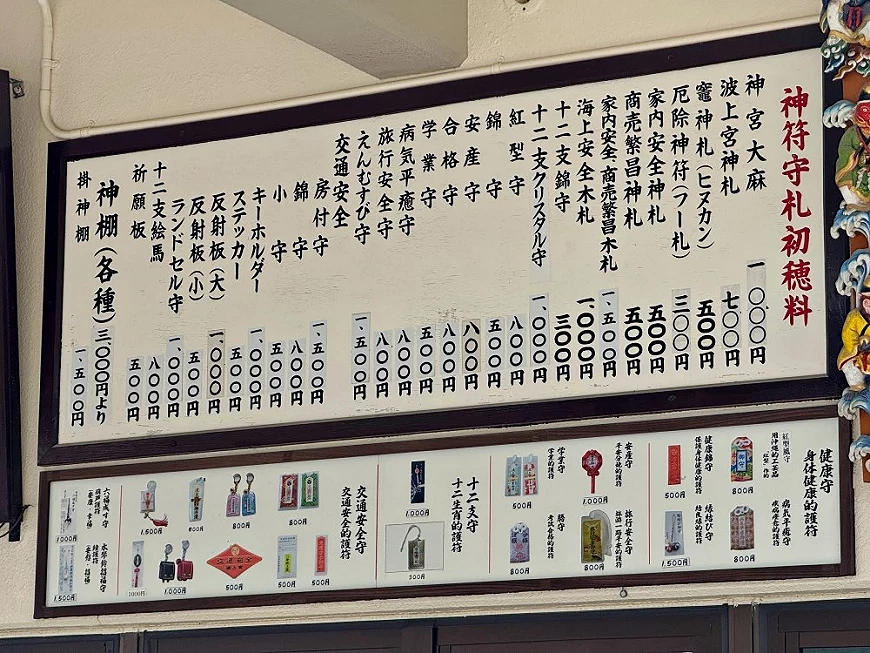 神符守札初穂料
神宮大麻 一、〇〇〇円
波上宮神札 七〇〇円
竈神札(ヒヌカン) 五〇〇円
厄除神符(フー札) 三〇〇円
家内安全神札 五〇〇円
商売繁昌神札 五〇〇円
家内安全、商売繁昌木札 一、五〇〇円
海上安全木札 一、〇〇〇円
十二支錦守 三〇〇円
十二支クリスタル守 一、〇〇〇円
紅型守 八〇〇円
錦守 五〇〇円
安産守 八〇〇円
合格守 八〇〇円
学業守 五〇〇円
病気平癒守 八〇〇円
旅行安全守 八〇〇円
えんむすび守 一、五〇〇円
交通安全
房付守 一、五〇〇円
錦守 八〇〇円
小守 五〇〇円
キーホルダー 一、〇〇〇円
ステッカー 五〇〇円
反射板(大) 一、〇〇〇円
反射板(小) 五〇〇円
ランドセル守 一、〇〇〇円
十二支絵馬 八〇〇円
祈願板 五〇〇円
神棚(各種) 三、〇〇〇円より
掛神棚 一、五〇〇円
健康守
身体健康的護符
紅型風守
用沖縄的工芸品
「紅型」作的
800円
病気平癒守
疾病痊愈的護符
800円
健康錦守
保護身体健康的護符
500円
縁結び守
結良縁的護符
1,500円
安産守
平安分娩的護符
1,000円
旅行安全守
旅游一路平安的護符
800円
学業守
学業的護符
500円
勝守
考試合格的護符
800円
十二支守
十二生肖的護符
1,000円
300円
交通安全守
交通安全的護符
800円
800円
800円
1,500円
500円
500円
交通安全
500円
1,000円
1000円
六福成寸守
1000円
1,500円